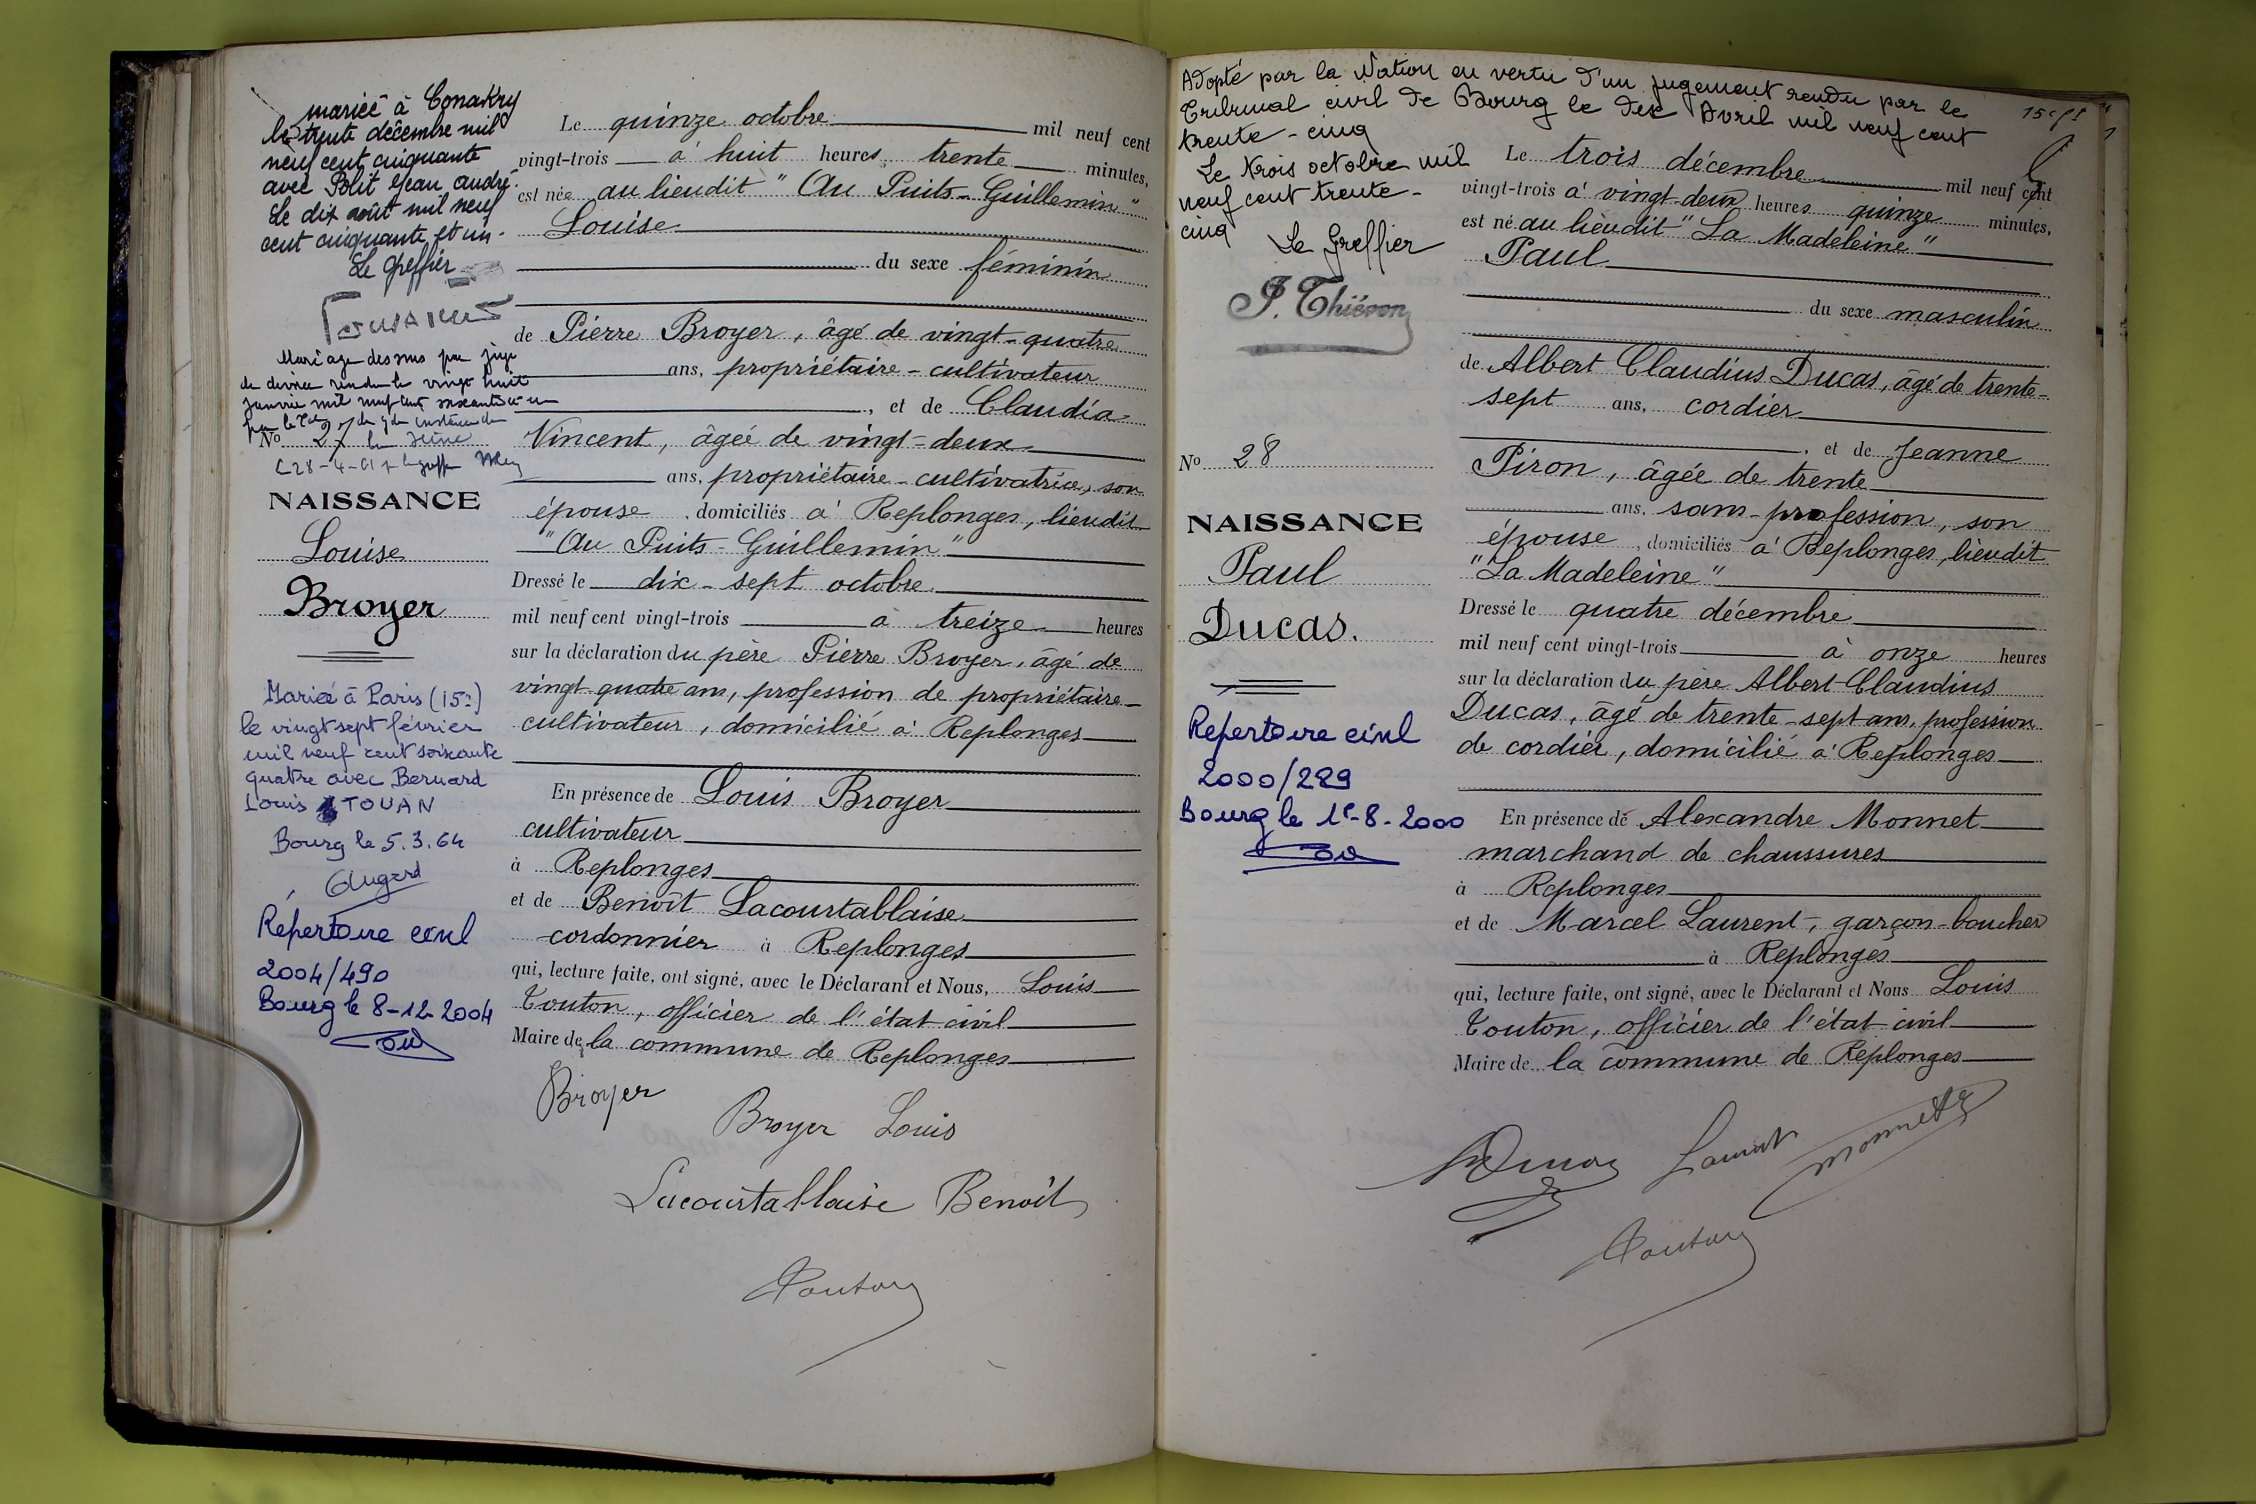 mariée à Conakry
le trente décembre mil
neuf cent cinquante
avec Polit Jean André.
Le dix août mil neuf
cent cinquante et un.
Le Greffier
Mariage dissous par juge
de divorce rendu le vingt huit
janvier mil neuf cent soixante et un
par le de gde instance de
la Seine
No 27
NAISSANCE
Louise
Broyer
Mariée à Paris (15e)
le vingt sept février
mil neuf cent soixante
quatre avec Bernard
Louis TOUAN
Bourg le 5.3.64
Répertoire civil
2004/490
Bourg le 8-12-2004
Le quinze octobre mil neuf cent
vingt-trois à huit heures trente minutes,
est née au lieudit "Au Puits-Guillemin"
Louise
du sexe féminin
de Pierre Broyer, âgé de vingt-quatre
ans, propriétaire-cultivateur
, et de Claudia
Vincent, âgée de vingt-deux
ans, propriétaire-cultivatrice, son
épouse, domiciliés à Replonges, lieudit
"Au Puits-Guillemin"
Dressé le dix-sept octobre
mil neuf cent vingt-trois à treize heures
sur la déclaration du père Pierre Broyer, âgé de
vingt-quatre ans, profession de propriétaire-
cultivateur, domicilié à Replonges
En présence de Louis Broyer
cultivateur
à Replonges
et de Benoît Lacourtablaise
cordonnier à Replonges
qui, lecture faite, ont signé, avec le Déclarant et Nous, Louis
Touton, officier de l'état civil
Maire de la commune de Replonges
Broyer
Broyer Louis
Lacourtablaise Benoît
Touton
Adopté par la Nation en vertu d'un jugement rendu par le
Tribunal civil de Bourg le dix Avril mil neuf cent
trente-cinq
Le trois octobre mil
neuf cent trente-
cinq
Le Greffier
J. Thiévon
No 28
NAISSANCE
Paul
Ducas.
Repertoire civil
2000/289
Bourg le 1er-8-2000
Le trois décembre mil neuf cent
vingt-trois à vingt-deux heures quinze minutes,
est né au lieudit "La Madeleine"
Paul
du sexe masculin
de Albert Claudius Ducas, âgé de trente-
sept ans, cordier
, et de Jeanne
Piron, âgée de trente
ans, sans profession, son
épouse, domiciliés à Replonges, lieudit
"La Madeleine"
Dressé le quatre décembre
mil neuf cent vingt-trois à onze heures
sur la déclaration du père Albert Claudius
Ducas, âgé de trente-sept ans, profession
de cordier, domicilié à Replonges
En présence de Alexandre Monnet
marchand de chaussures
à Replonges
et de Marcel Laurent, garçon-boucher
à Replonges
qui, lecture faite, ont signé, avec le Déclarant et Nous Louis
Touton, officier de l'état civil
Maire de la commune de Replonges
Laurent
Monnet
Touton